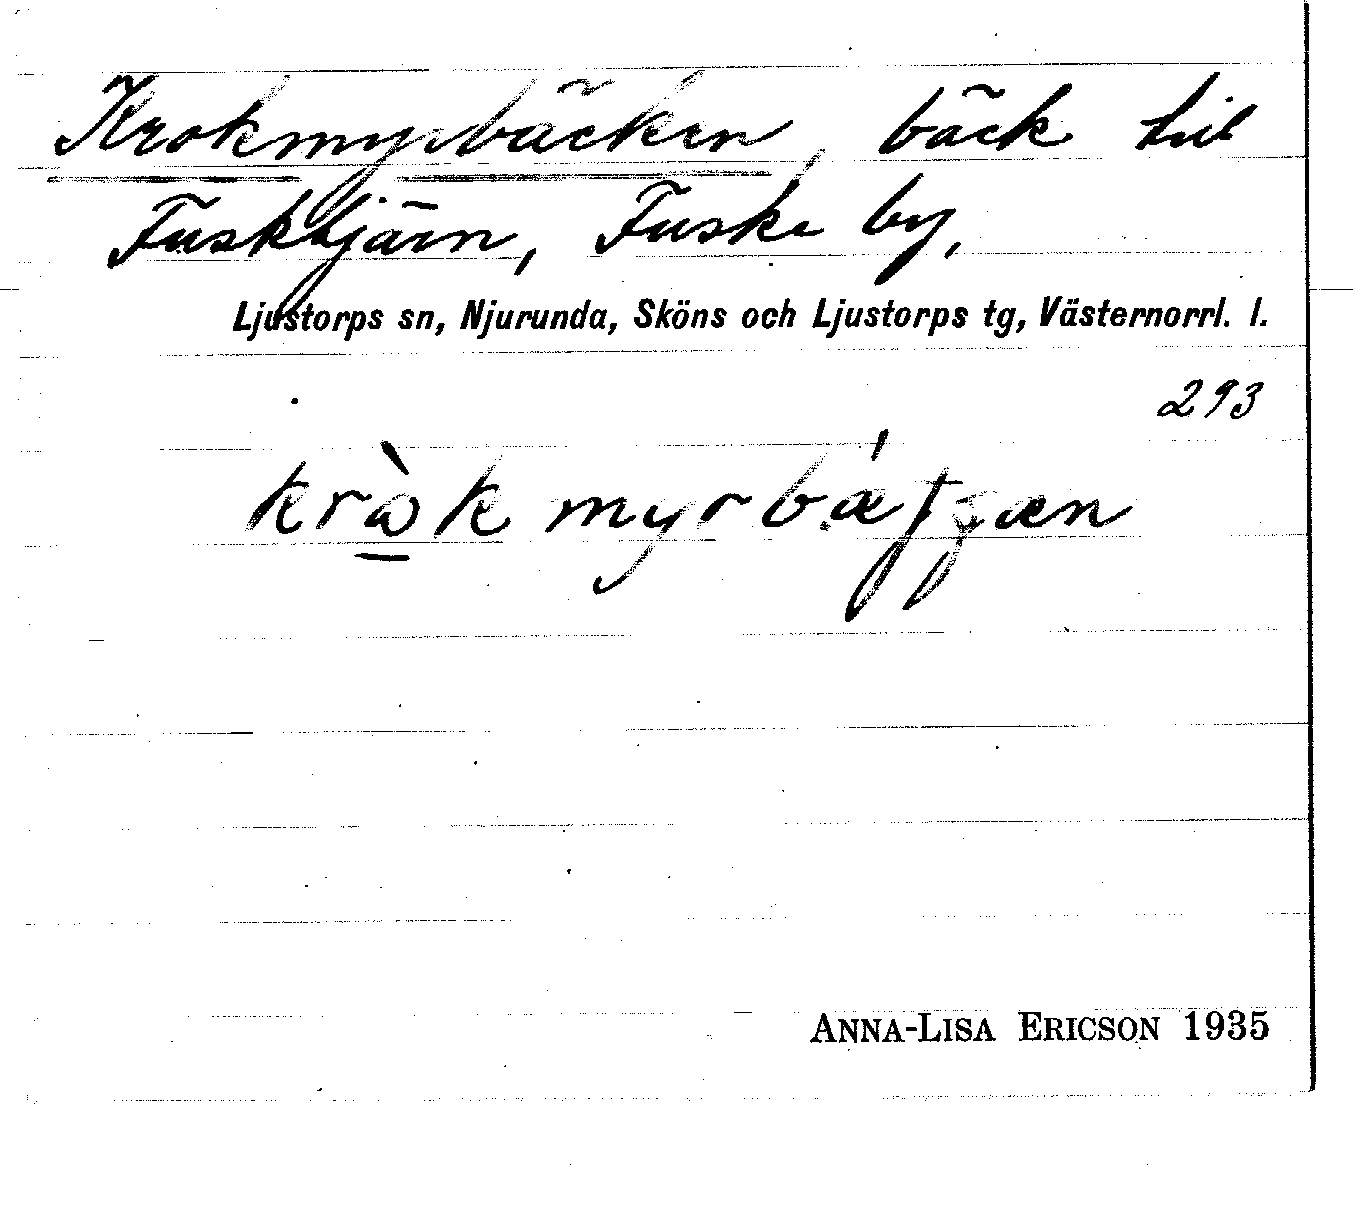 Krokmyrbäcken, bäck till
Fusktjärn, Fuske by,
Ljustorps sn, Njurunda, Sköns och Ljustorps tg, Västernorrl. l.
293
ANNA-LISA ERICSON 1935